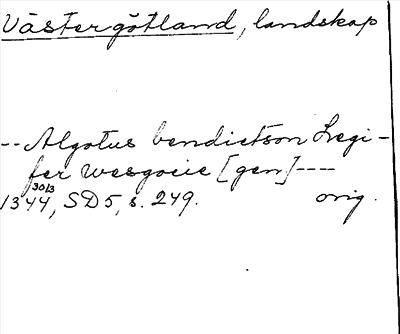 Västergötland, landskap
-- Algotus bendictson Legi-
fer wesgocie [gen] ----
1344 30/3, SD5, s. 249. orig.